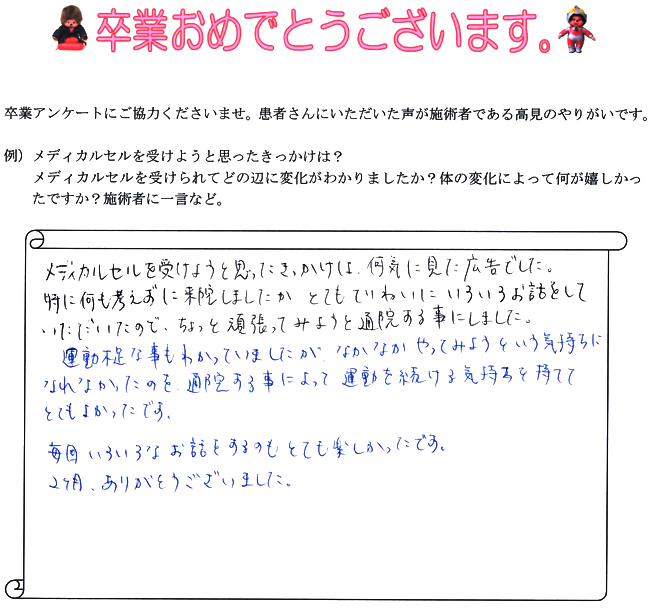 卒業おめでとうございます。
卒業アンケートにご協力くださいませ。患者さんにいただいた声が施術者である高見のやりがいです。
例）メディカルセルを受けようと思ったきっかけは？
メディカルセルを受けられてどの辺に変化がわかりましたか？体の変化によって何が嬉しかっ
たですか？施術者に一言など。
メディカルセルを受けようと思ったきっかけは、何気に見た広告でした。
特に何も考えずに来院しましたが とてもていねいに いろいろお話をして
いただいたので、ちょっと頑張ってみようと通院する事にしました。
運動不足な事もわかっていましたが、なかなか やってみようという気持ちに
なれなかったのを、通院する事によって 運動を続ける気持ちを持てて
とてもよかったです。
毎回 いろいろな お話をするのも とても楽しかったです。
2ヶ月、ありがとうございました。